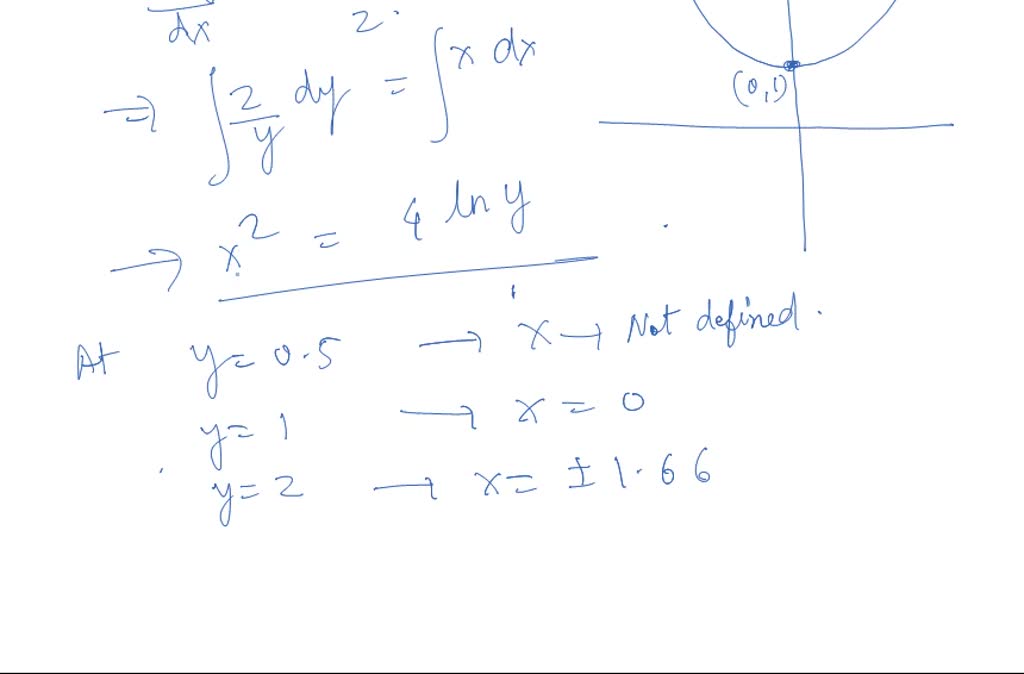 dx 2.
⇒ ∫ 2/y dy = ∫ x dx
(0,1)
→ x² = 4 ln y
At y = 0.5 → x → Not defined.
y = 1 → x = 0
y = 2 → x = ± 1.66